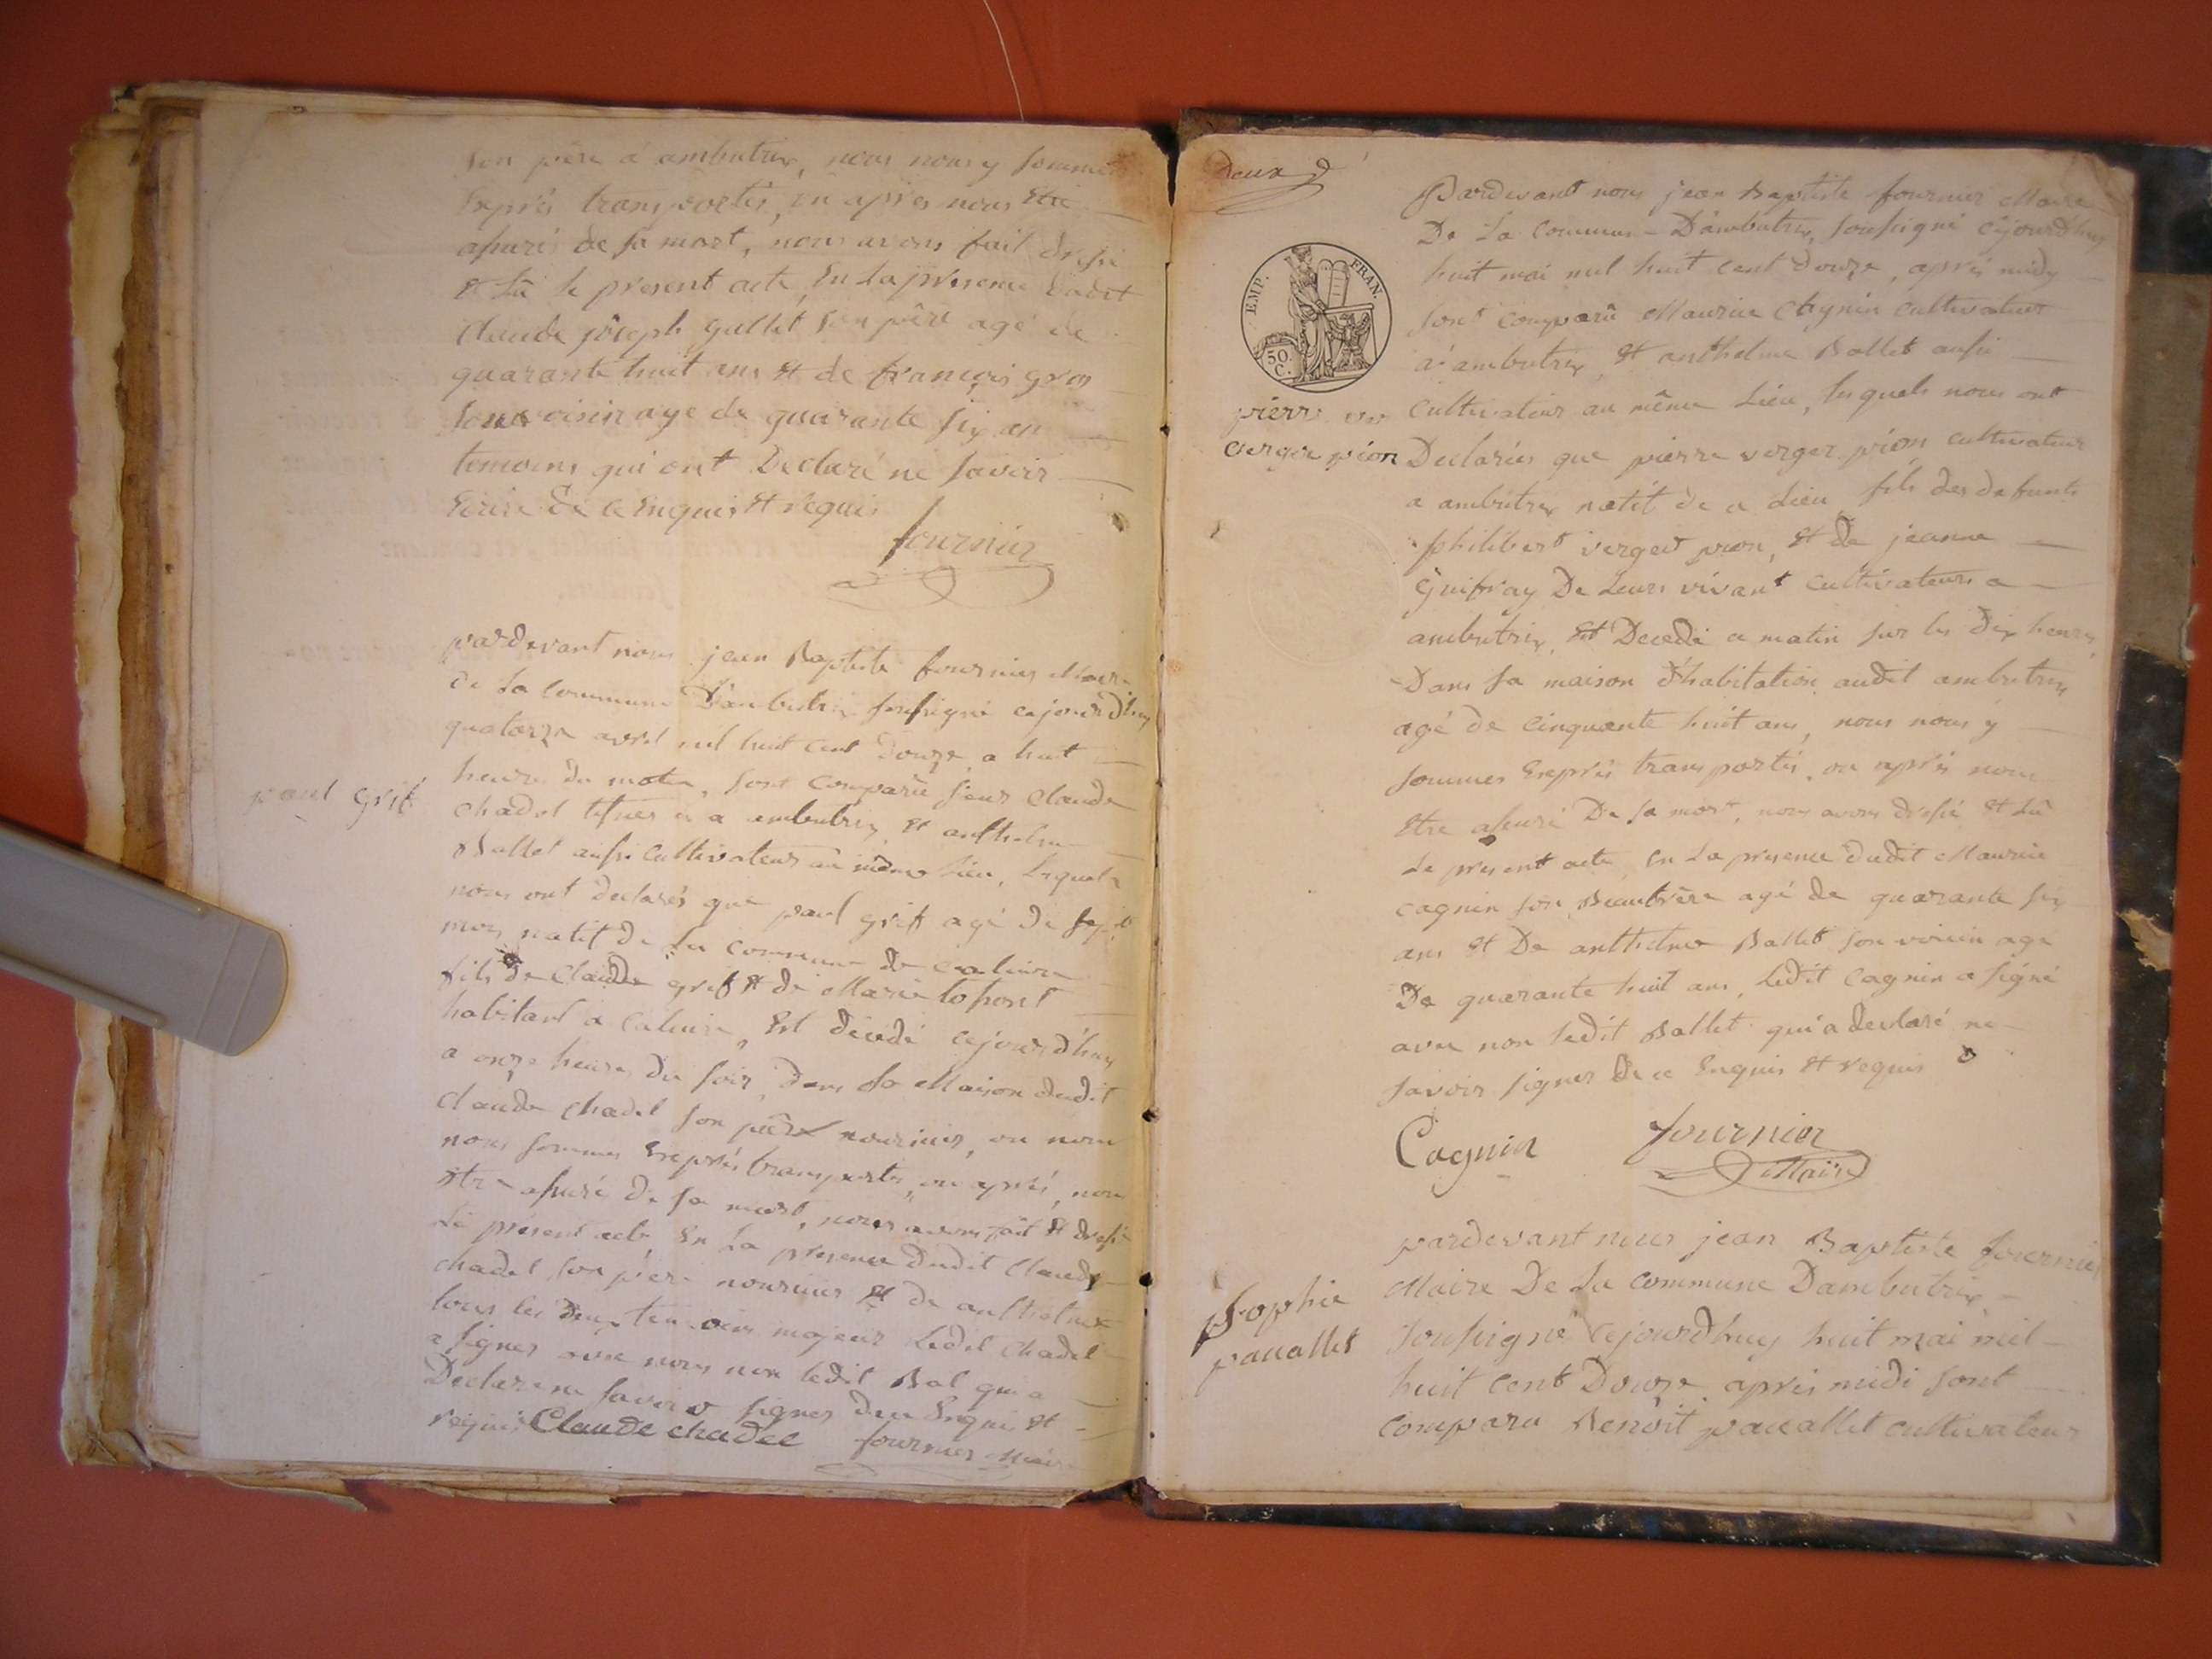 son père a ambutrix, nous nous y sommes
Exprès transportés, ou après nous Etre
assuré de sa mort, nous avons fait dressé
et Lû le present acte, En La presence dudit
Claude joseph gallet son père agé de
quarante huit ans et de françois gros
son voisin age de quarante six an
temoins qui ont Declaré ne savoir
Ecrire de ce Enquis et requis
fournier
pardevant nous jean Baptiste fournier Maire
de La Commune D'ambutrix soussigné cejourdhuy
quatorze avril mil huit Cent Douze, a huit
heures du matin, sont Comparû sieur Claude
paul grit
chadel a ambutrix, et anthelme
Ballet aussi Cultivateur au même Lieu, Lesquels
nous ont declarés que paul grit agé de sept
mois natif de La commune de Caluire
fils de Claude grit et de Marie
habitant a Caluire, Est décedé cejourdhuy
a onze heures du soir, Dans La Maison dudit
Claude chadel son père nouricier, ou nous
nous sommes Exprès transportés, ou après, nous
etre assuré de sa mort, nous avons fait et dressé
Le présent acte En La presence dudit Claude
chadel son père nouricier et de anthelme
tous les deux temoins majeur Ledit chadel
a signer avec nous non ledit Bal qui a
Declaré ne savoir signer de ce Enquis et
requis Claude chadel fournier Maire
Deux
EMP. FRAN.
50. C.
Pardevant nous jean Baptiste fournier Maire
De La Commune D'ambutrix, soussigné cejourd'huy
huit mai mil huit cent douze, après midy
sont comparû Maurice Cagnin cultivateur
a ambutrix, et anthelme Ballet aussi
pierre ver
verger pion
Cultivateur au même Lieu, lesquels nous ont
Declarées que pierre verger pion cultivateur
a ambutrix natif de ce Lieu fils des defunts
philibert verger pion, et de jeanne
Guifray De Leurs vivant cultivateurs a
ambutrix, Est Decedé ce matin sur les dix heures,
Dans sa maison d'habitation audit ambutrix,
agé de cinquante huit ans, nous nous y
sommes Exprès transportés, ou après nous
Etre assuré De sa mort, nous avons dressé et Lû
Le present acte, En La presence dudit Maurice
cagnin son Beaufrère agé de quarante six
ans et De anthelme Ballet son voisin age
De quarante huit ans, Ledit Cagnin a signé
avec nou ledit Ballet qui a declaré ne
savoir signer De ce Enquis et requis
Cagnin fournier
Maire
pardevant nous jean Baptiste fournier
Maire De La Commune Dambutrix
Sophie
pauallet
soussigné cejourdhuy huit mai mil
huit cent Douze après midi sont
comparu Benoit pauallet cultivateur